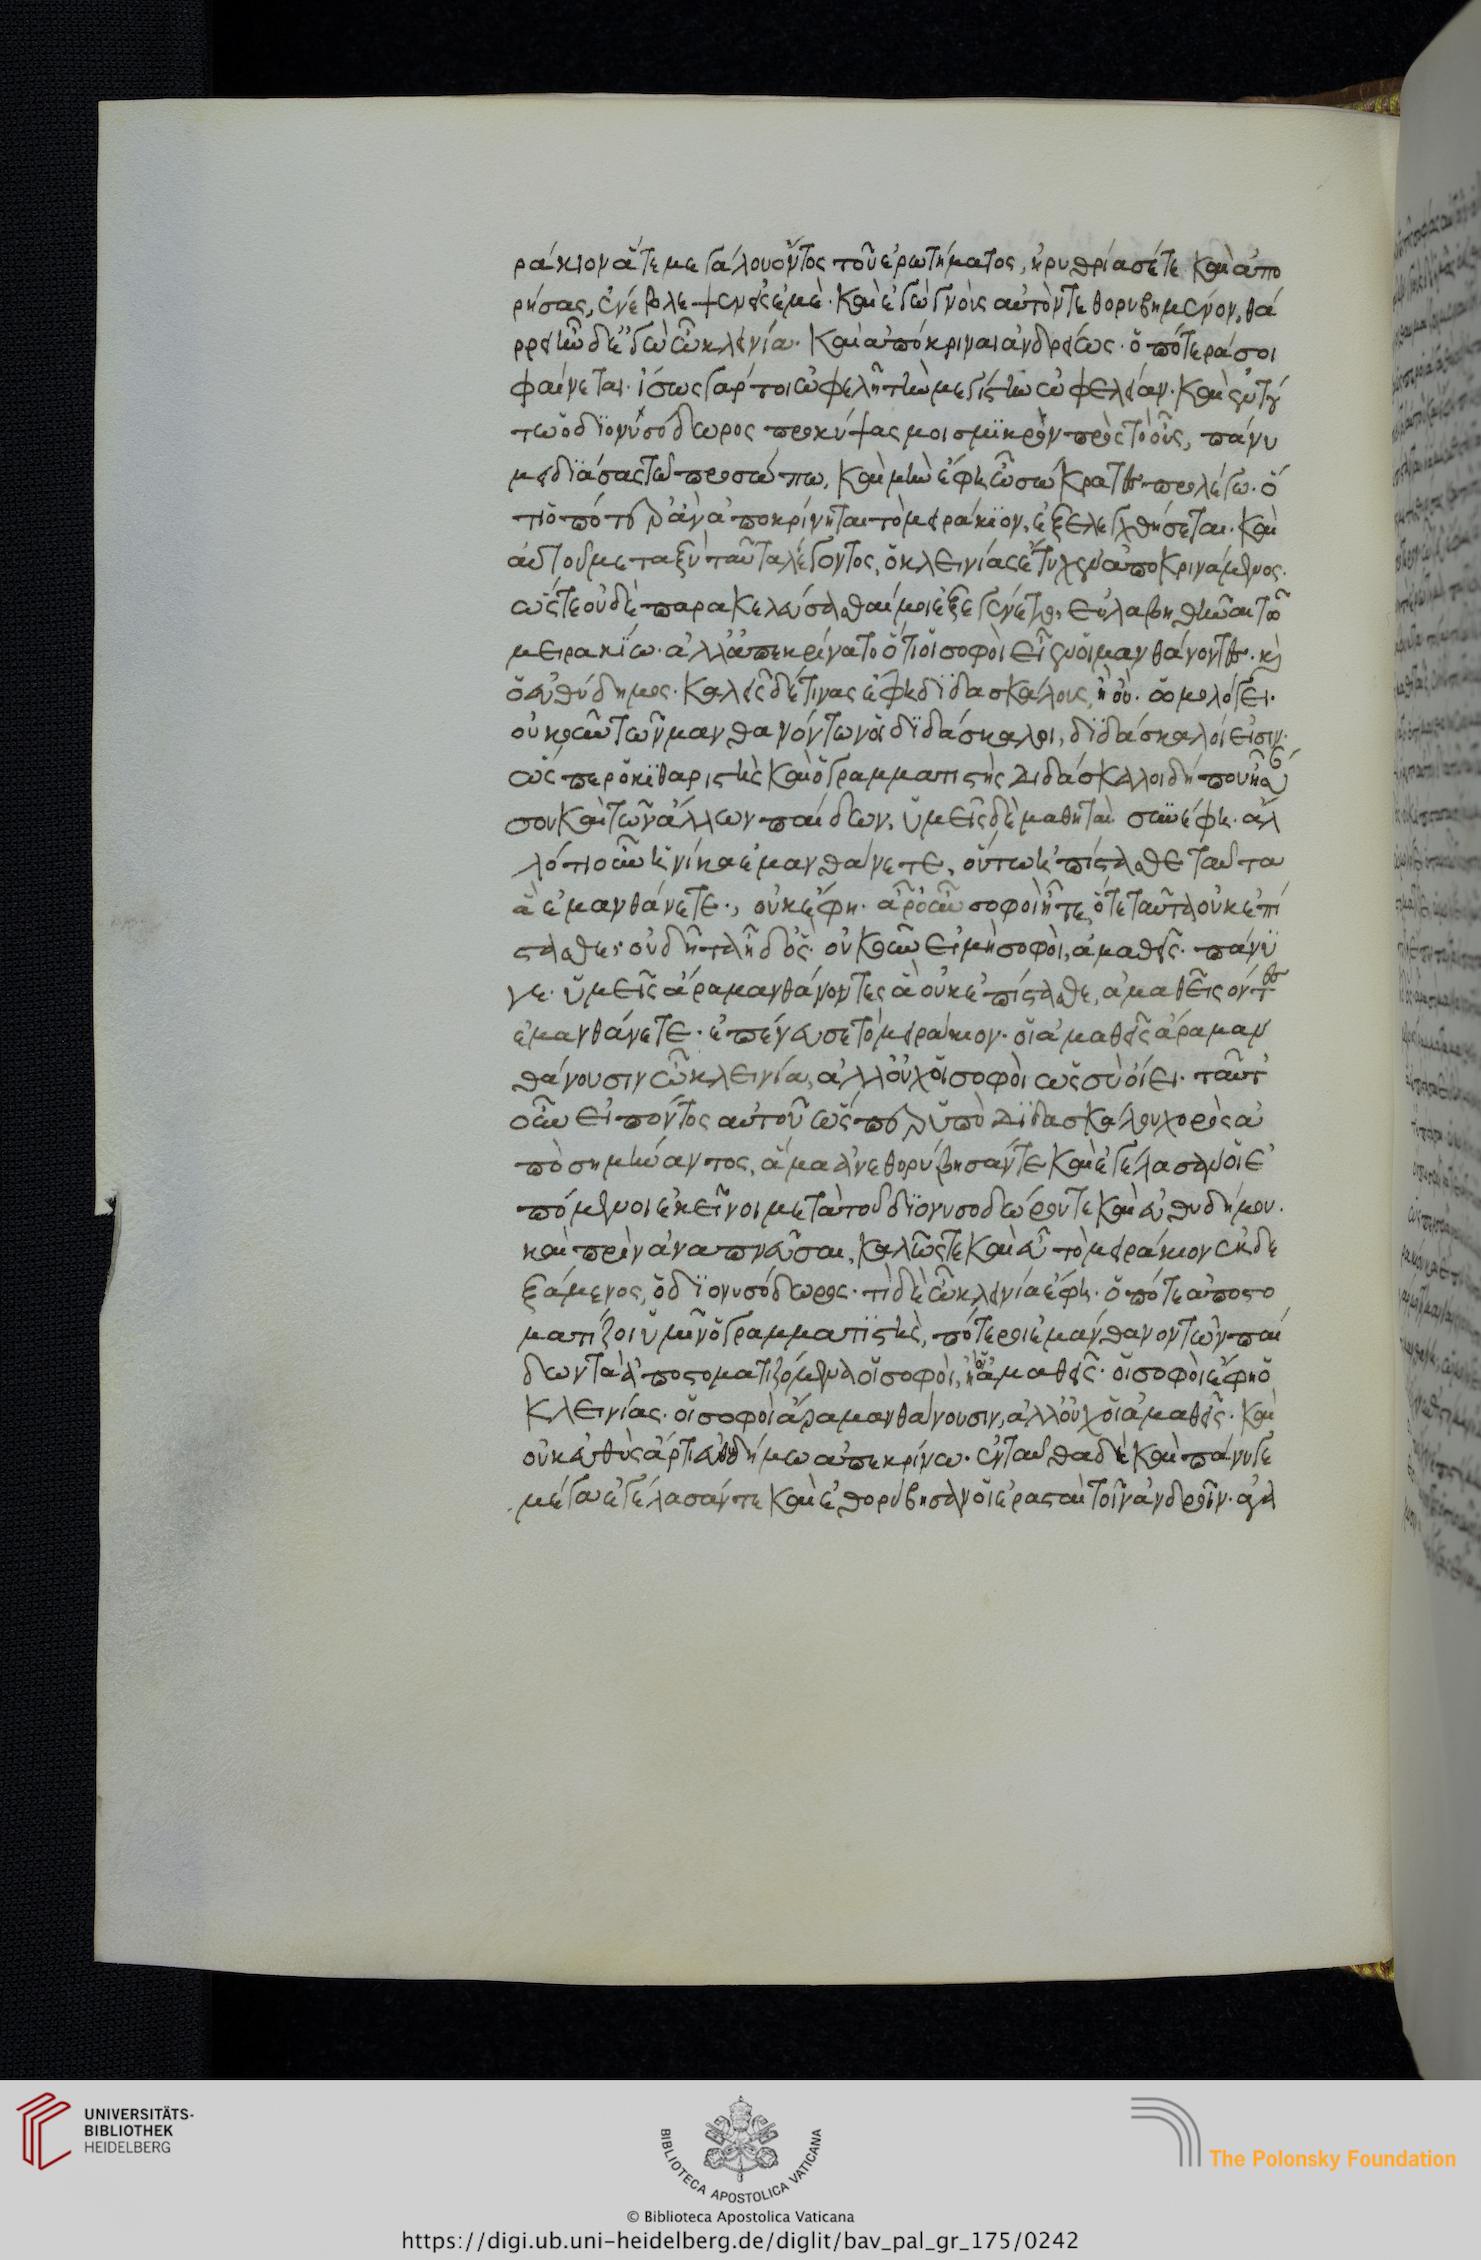 ράκιον ἅτε μεγάλου ὄντος τοῦ ἐρωτήματος, ἠρυθρίασέ τε καὶ ἀπο
ρήσας, ἐνέβλεψεν εἰς ἐμὲ· καὶ ἐγὼ γνοὺς αὐτὸν τεθορυβημένον, θά
ρρει ἦν δ' ἐγὼ ὦ κλεινία· καὶ ἀπόκριναι ἀνδρείως· ὁπότερά σοι
φαίνεται· ἴσως γάρ τοι ὠφελῇ τὴν μεγίστην ὠφελείαν· καὶ ἐν τού
τω ὁ διονυσόδωρος προκύψας μοι σμικρὸν πρὸς τὸ οὖς, πάνυ
μειδιάσας τῶ προσώπω, καὶ μὴν ἔφη ὦ σώκρατες προλέγω· ὅ
τι ὁπότερ' ἂν ἀποκρίνηται τὸ μειράκιον, ἐξελεγχθήσεται· καὶ
αὐτοῦ μεταξὺ ταῦτα λέγοντος, ὁ κλεινίας ἔτυχεν ἀποκρινάμενος·
ὥστε οὐδὲ παρακελεύσασθαί μοι ἐξεγένετο, εὐλαβηθῆναι τῶ
μειρακίω· ἀλλ' ἀπεκρίνατο ὅτι οἱ σοφοὶ εἶεν οἱ μανθάνοντες· κὶ
ὁ εὐθύδημος· καλεῖς δέ τινας ἔφη διδασκάλους, ἢ οὔ· ὡμολόγει·
οὐκοῦν τῶν μανθανόντων οἱ διδάσκαλοι, διδάσκαλοί εἰσιν·
ὥσπερ ὁ κιθαριστὴς καὶ ὁ γραμματιστὴς διδάσκαλοι δήπου ἦσαν
σου καὶ τῶν ἄλλων παίδων, ὑμεῖς δὲ μαθηταὶ συνέφη· ἄλ
λό τι οὖν ἡνίκα ἐμανθάνετε, οὔπω ἠπίστασθε ταῦτα
ἃ ἐμανθάνετε·, οὐκ ἔφη· ἆρ' οὖν σοφοὶ ἦτε, ὅτε ταῦτα οὐκ ἐπί
στασθε· οὐ δῆτα ἦ δ' ὅς· οὐκοῦν εἰ μὴ σοφοὶ, ἀμαθεῖς· πάνυ
γε· ὑμεῖς ἄρα μανθάνοντες ἃ οὐκ ἐπίστασθε, ἀμαθεῖς ὄντες
ἐμανθάνετε· ἐπένευσε τὸ μειράκιον· οἱ ἀμαθεῖς ἄρα μαν
θάνουσιν ὦ κλεινία, ἀλλ' οὐχ οἱ σοφοὶ ὡς σὺ οἴει· ταῦτ'
οὖν εἰπόντος αὐτοῦ ὥσπερ ὑπὸ διδασκάλου χορὸς ἀ
πὸσημήναντος, ἅμα ἀνεθορύβησάν τε καὶ ἐγέλασαν οἱ ἑ
πόμενοι ἐκεῖνοι μετὰ τοῦ διονυσοδώρου τε καὶ εὐθυδήμου·
καὶ πρὶν ἀναπνεῦσαι, καλῶς τε καὶ εὖ τὸ μειράκιον ἐκδε
ξάμενος, ὁ διονυσόδωρος· τί δὲ ὦ κλεινία ἔφη· ὁπότε ἀποστο
ματίζοι ὑμῖν ὁ γραμματιστὴς, πότεροι ἐμάνθανον τῶν παί
δων τὰ ἀποστοματιζόμενα οἱ σοφοὶ, ἢ οἱ ἀμαθεῖς· οἱ σοφοὶ ἔφη ὁ
κλεινίας· οἱ σοφοὶ ἄρα μανθάνουσιν, ἀλλ' οὐχ οἱ ἀμαθεῖς· καὶ
οὐκ εὐθὺς ἄρτι εὐθυδήμω ἀπεκρίνω· ἐνταῦθα δὴ καὶ πάνυ γε
μέγα ἐγέλασάν τε καὶ ἐθορύβησαν οἱ ἐρασταὶ τοῖν ἀνδροῖν· ἀγα
UNIVERSITÄTS-
BIBLIOTHEK
HEIDELBERG
BIBLIOTECA APOSTOLICA VATICANA
The Polonsky Foundation
© Biblioteca Apostolica Vaticana
https://digi.ub.uni-heidelberg.de/diglit/bav_pal_gr_175/0242